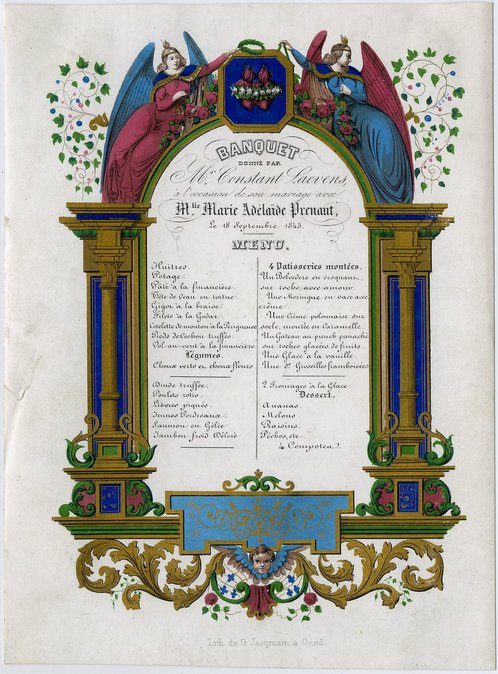 BANQUET
DONNÉ PAR
Mr. Constant Laevens,
à l'occasion de son mariage avec
Mlle Marie Adélaïde Prenaut,
Le 18 Septembre 1845.
MENU.
Huîtres.
Potage.
Pâté à la financière.
Tête de veau en tortue
Gigot à la braise.
Filets à la Godar.
Cotelette de mouton à la Périgueux
Pieds de Cochon truffés.
Vol-au-vent à la financière
Légumes.
Choux verts et choux fleurs
Dinde truffée.
Poulets rotis.
Lièvres piqués.
Jeunes Perdreaux.
Saumon en Gélée
Jambon froid Décoré
4 Patisseries montées.
Un Belvedere en croquant
sur roche avec amour.
Une Meringue en vase avec
crême.
Une Crême polonaise sur
socle, montée en Caramelle.
Un Gateau au punch panaché
sur roches glacées de fruits.
Une Glace à la vanille.
Une de Groseilles framboisées
2 Fromages à la Glace.
Dessert.
Ananas.
Melons.
Raisins.
Pêches, etc.
4 Compotes.
Lith. de G. Jacqmain, à Gand.